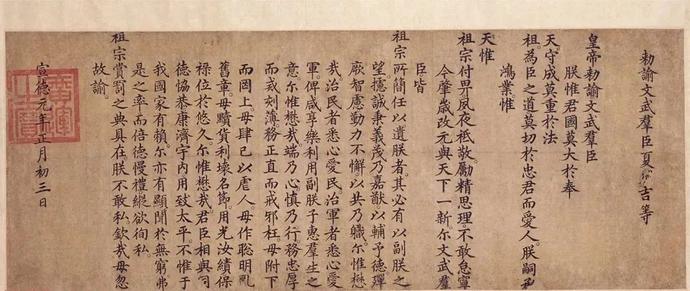 勅諭文武羣臣夏原吉等
皇帝勅諭文武羣臣
朕惟君國莫大於奉
天守成莫重於法
祖為臣之道莫切於忠君而愛人朕嗣承
鴻業惟
天惟
祖宗付畀夙夜祗敬勵精思理不敢怠寧
今肇歲改元與天下一新尔文武羣
臣皆
祖宗所簡任以遺朕者其必有以副朕之
望攄誠秉義茂乃嘉猷以輔予德殫
厥智慮勤力不懈以共乃職尔惟懋
哉治民者悉心愛民治軍者悉心愛
軍俾咸享樂利用副朕子惠羣生之
意尔惟懋哉端乃心慎乃行務忠厚
而戒刻薄務正直而戒邪枉毋附下
而罔上毋肆己以虐人毋作聰明亂
舊章毋黷貨利壞名節用光汝績保
祿位於悠久尔惟懋哉君臣相與同
德協恭康濟宇內用致太平不惟于
我國家有賴尔亦有顯聞於無窮弗
是之率而倍德慢禮縱欲徇私
祖宗賞罰之典具在朕不敢私欽哉毋忽
故諭
宣德元年正月初三日